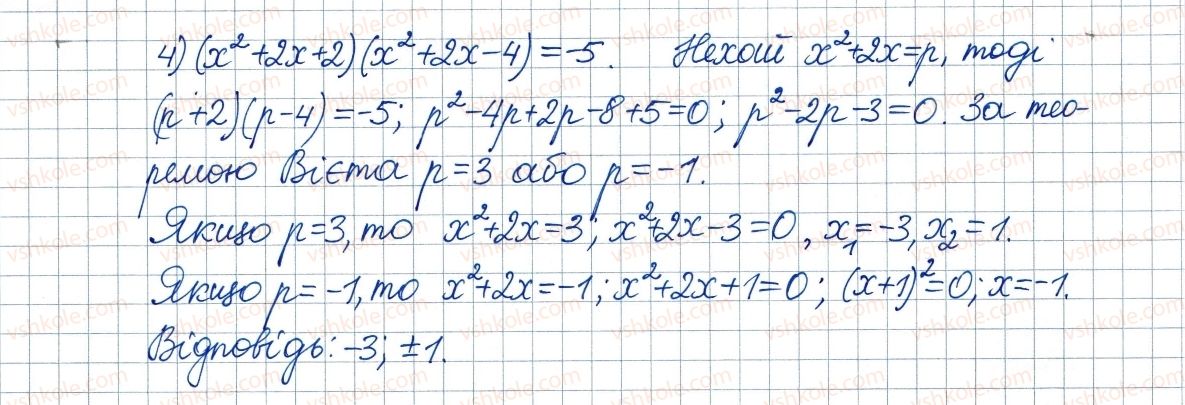 4) (x²+2x+2)(x²+2x-4)=-5. Нехай x²+2x=p, тоді
(p+2)(p-4)=-5; p²-4p+2p-8+5=0; p²-2p-3=0. За тео-
ремою Вієта p=3 або p=-1.
Якщо p=3, то x²+2x=3; x²+2x-3=0, x₁=-3, x₂=1.
Якщо p=-1, то x²+2x=-1; x²+2x+1=0; (x+1)²=0; x=-1.
Відповідь: -3; ±1.